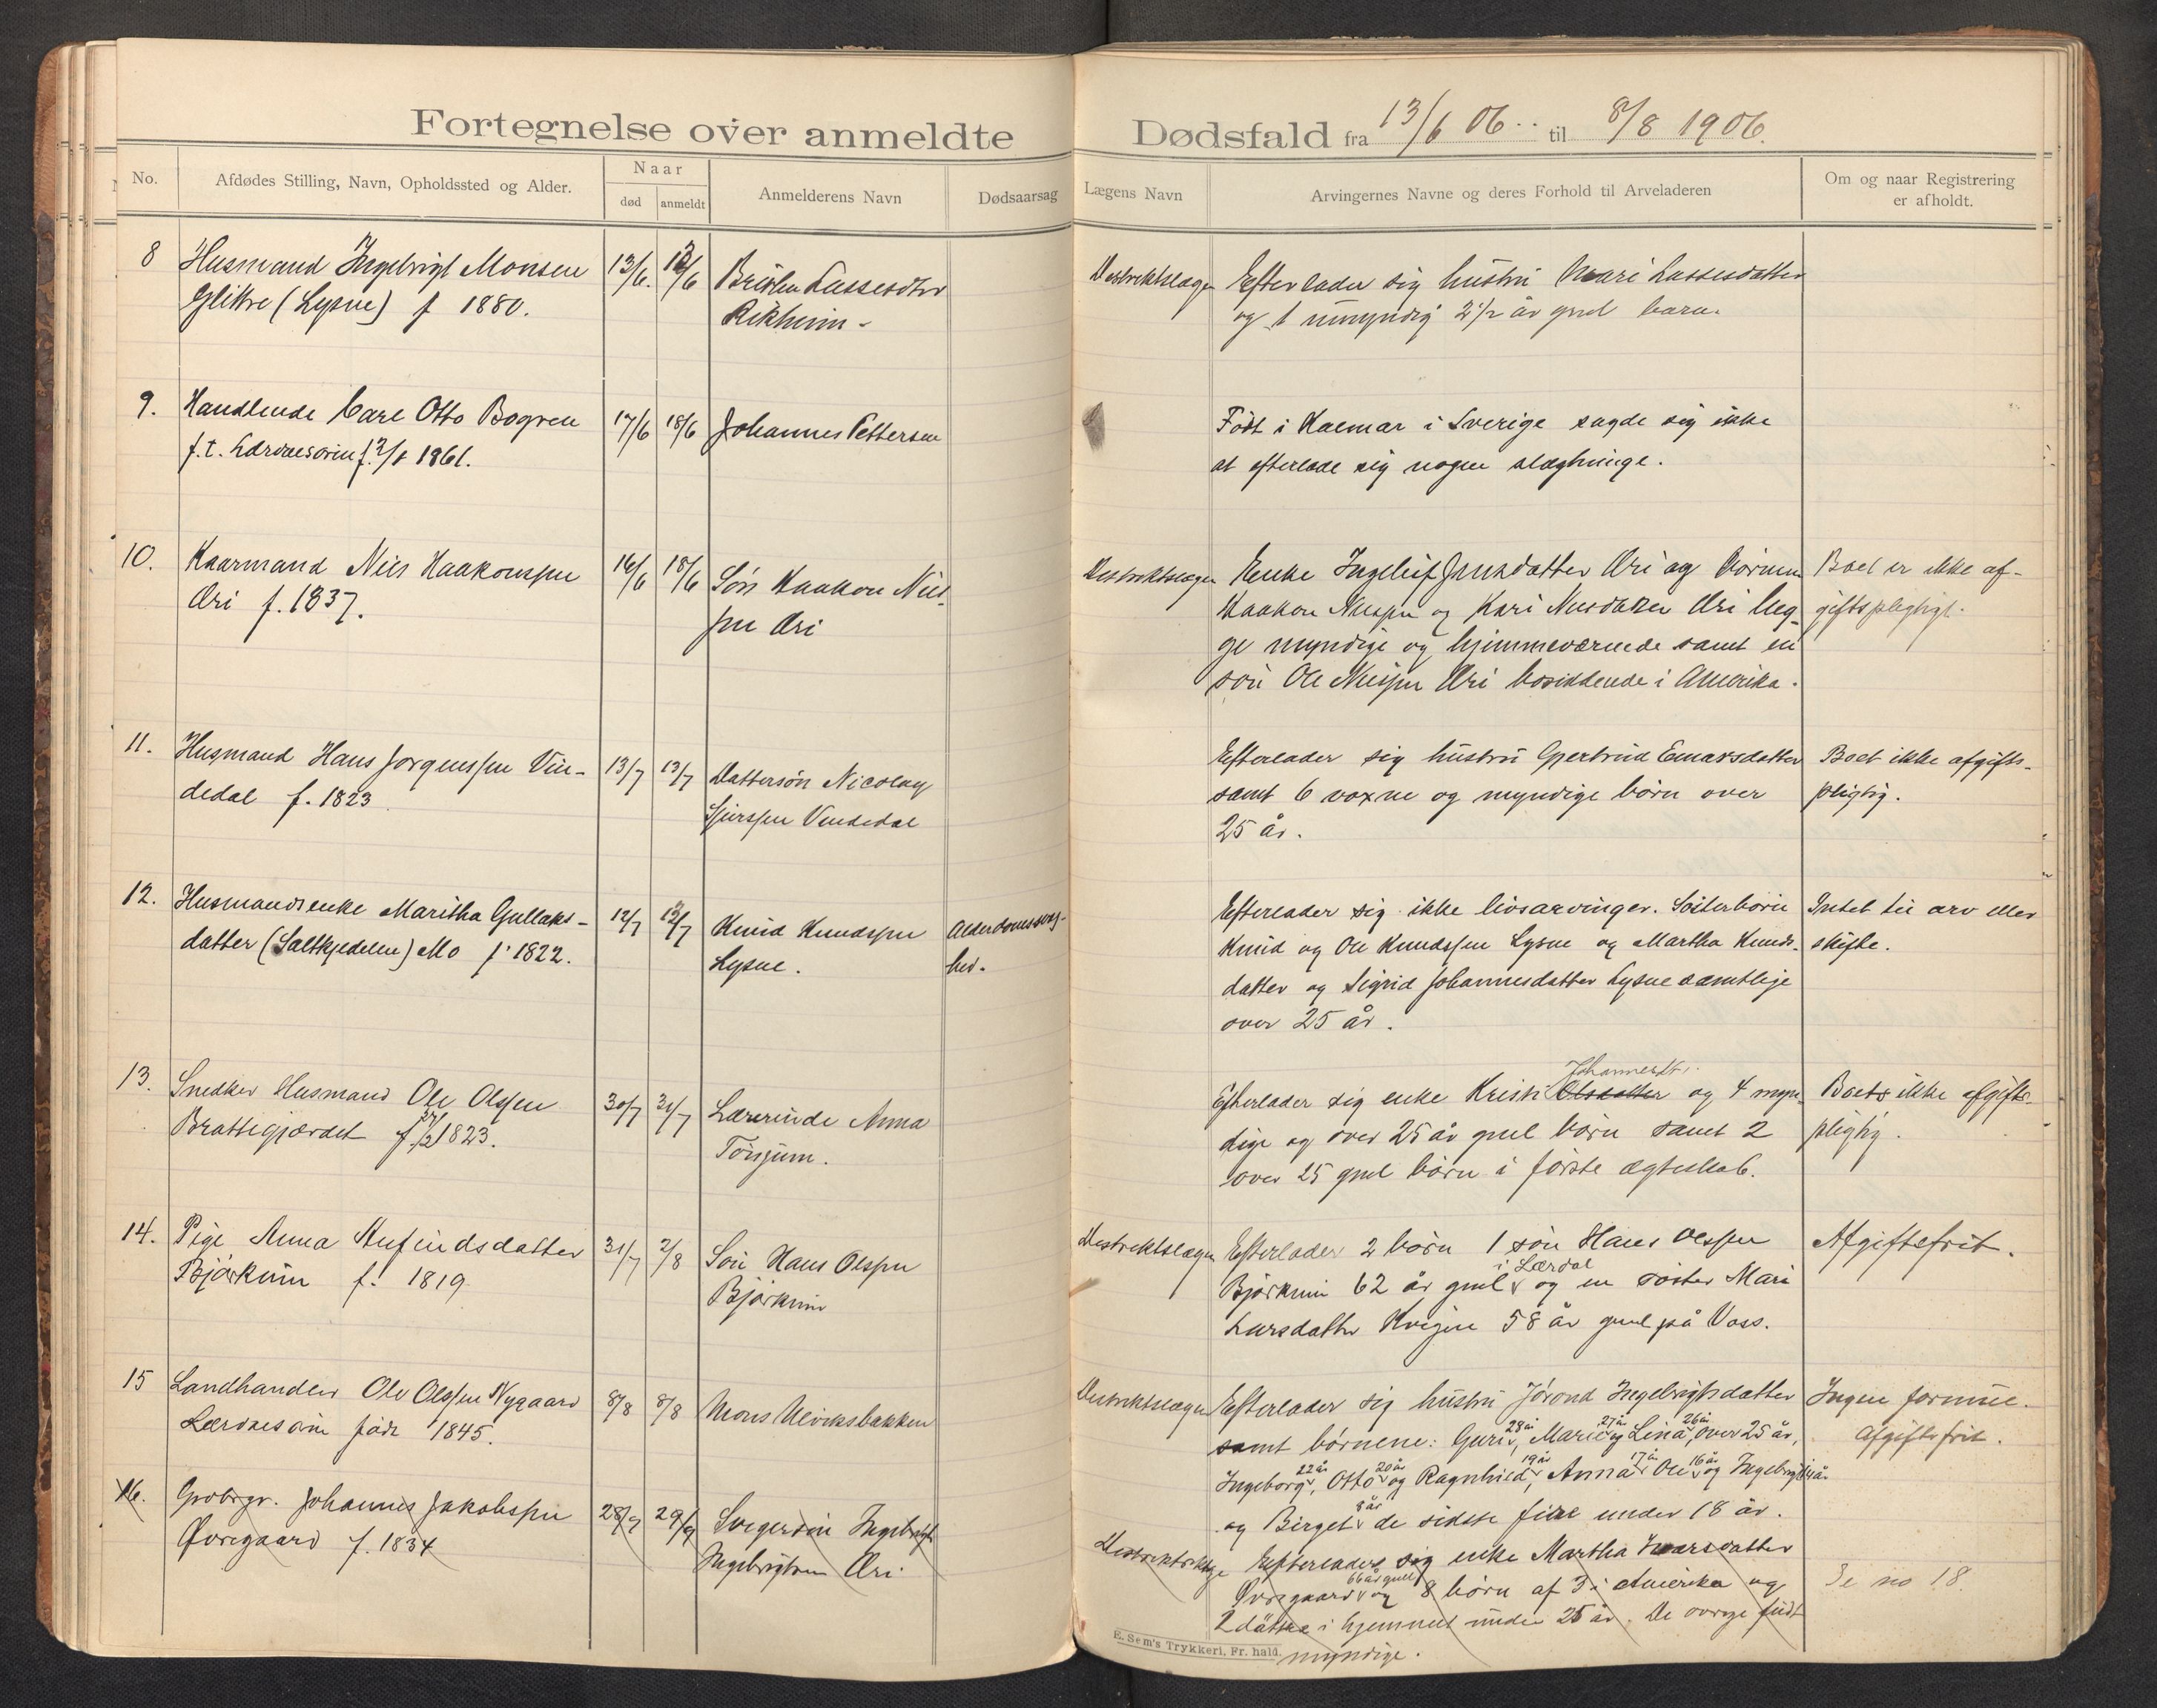 Fortegnelse over anmeldte Dødsfald fra 13/6 06 til 8/8 1906.
No. Afdødes Stilling, Navn, Opholdssted og Alder. Naar død anmeldt Anmelderens Navn Dødsaarsag Lægens Navn Arvingernes Navne og deres Forhold til Arveladeren Om og naar Registrering er afholdt.
8 Husmand Ingebrigt Monsen 13/6. 13/6 Lassesdtr Destriktslægen Efterlader sig hustru Mari Lassesdatter
Glittre (Lysne) f 1880. Rikheim og 1 umyndig 2 1/2 år gml barn.
9. Handlende Carl Otto Bogren 17/6 18/6 Johannes Pettersen Født i Kalmar i Sverige sagde sig ikke
f.t. Lærdalsøren f. 1861. at efterlade sig nogen slægtninge.
10. Kaarmand Nils Haakonssen 16/6 18/6 Søn Haakon Nils- Destriktslægen Enke Ingeleif Jensdatter Øri og børnene Boet er ikke af-
Øri f. 1837. sen Øri Haakon Nilssen og Kari Nilsdatter Øri beg- giftspligtigt.
ge myndige og hjemmeværende samt en
søn Ole Nilssen Øri bosiddende i Amerika.
11. Husmand Hans Jørgenssen Vin- 13/7 13/7 Dattersøn Nicolay Efterlader sig hustru Gjertrud Einarsdatter Boet ikke afgifts-
dedal f. 1823 Sjurssen Vindedal samt 6 voxne og myndige børn over pligtig.
25 år.
12. Husmandsenke Maritha Gullaks- 12/7 12/7 Knud Knudssen Alderdomssvag- Efterlader sig ikke livsarvinger. Søsterbørn Intet til arv eller
datter (Saltkjedelen) Mo f. 1822. Lysne. hed. Knud og Ole Knudssen Lysne og Martha Knuds- skifte.
datter og Sigrid Johannesdatter Lysne samtlige
over 25 år.
13. Snedker Husmand Ole Olssen 30/7 31/7 Lærerinde Anna Efterlader sig enke Kristi Olsdatter Johannesdtr. og 4 myn- Boets ikke afgifts-
Brattegjærdet f. 1823. Tønjum. dige og over 25 år gml børn samt 2 pligtig.
over 25 gml børn i første ægteskab.
14. Pige Anna Anfindsdatter 31/7 2/8 Søn Hans Olssen Destriktslægen Efterlader 2 børn 1 søn Hans Olssen Afgiftsfrit.
Bjørkum f. 1819. Bjørkum Bjørkum 62 år gml i Lærdal og en søster Mari
Larsdatter 58 år gml på Voss.
15 Landhandler Ole Olssen Nygaard 8/8 8/8 Mons Destriktslægen Efterlader sig hustru Jørond Ingebrigtsdatter Ingen formue.
Lærdalsøren født 1845. samt børnene: Guri 28 år, Mari 27 år og Lina 26 år, over 25 år, Afgiftsfrit.
Ingeborg 22 år, Otto 20 år og Ragnhild 19 år, Anna 17 år Ole 16 år og Ingebrigt
og Birget 8 år de sidste fire under 18 år.
16. Grdbrgr. Johannes Jakobssen 28/9 29/9 Svigersøn Ingebrigt Efterlader sig enke Martha Ivarsdatter
Øvregaard f. 1834 Ingebrigtsen Øri Øvregaard 66 år gml og 8 børn af 3 i Amerika og Se no 18.
2 døttre i hjemmet under 25 år. De øvrige fuldt
myndige.
E. Sem's Trykkeri, Fr. hald.